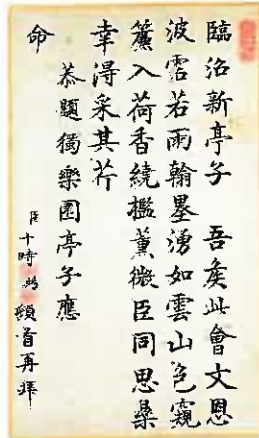 臨流新亭子 吾矦此會文恩
波霑若雨翰墨湧如雲山色窺
簾入荷香繞檻薰微臣同思樂
幸得采其芹
恭題獨樂園亭子應
命
臣十時賜頓首再拜